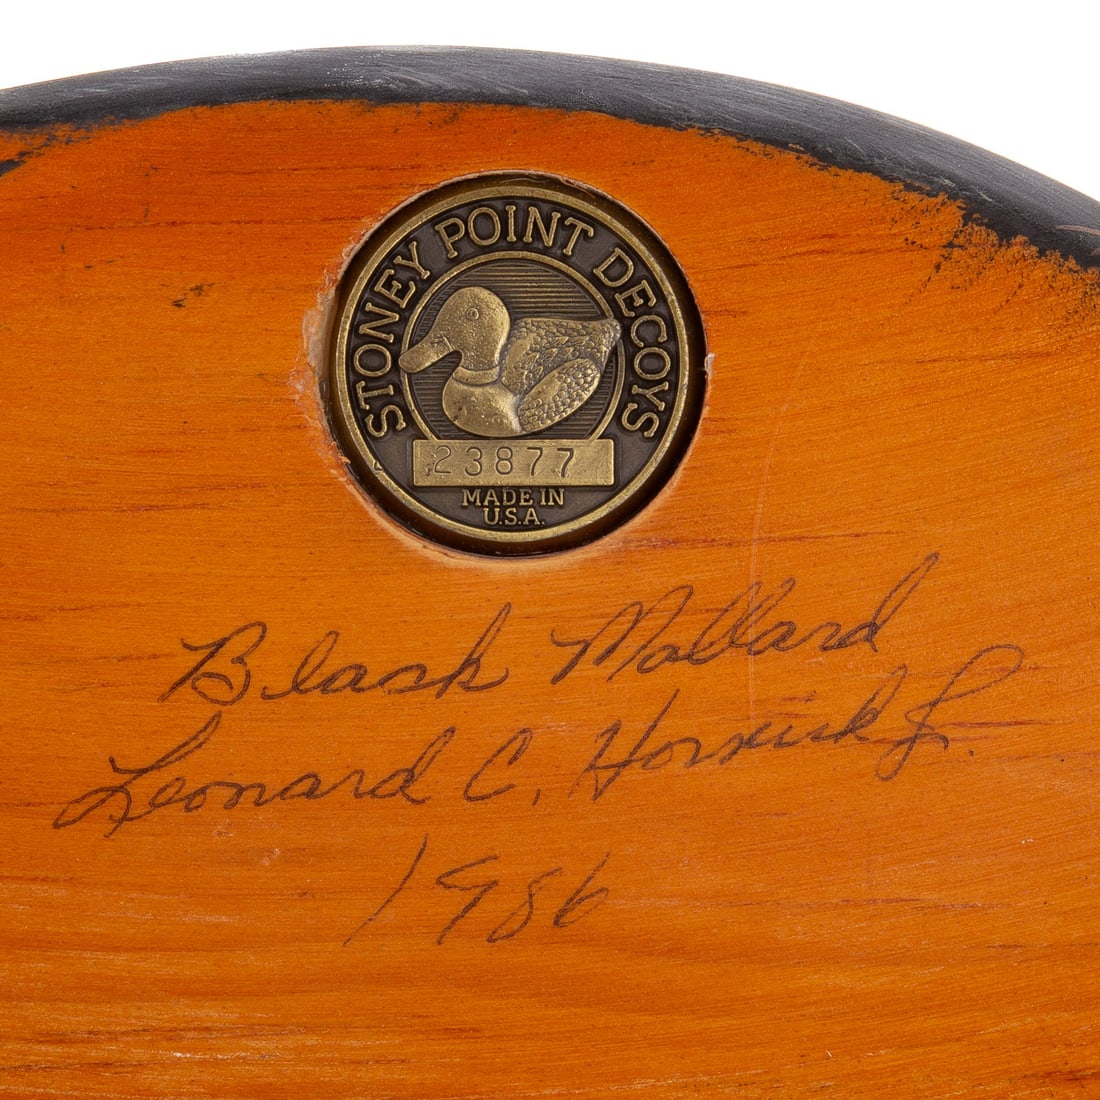 STONEY POINT DECOYS
23877
MADE IN
U.S.A.
Black Mallard
Leonard C. Jr.
1986